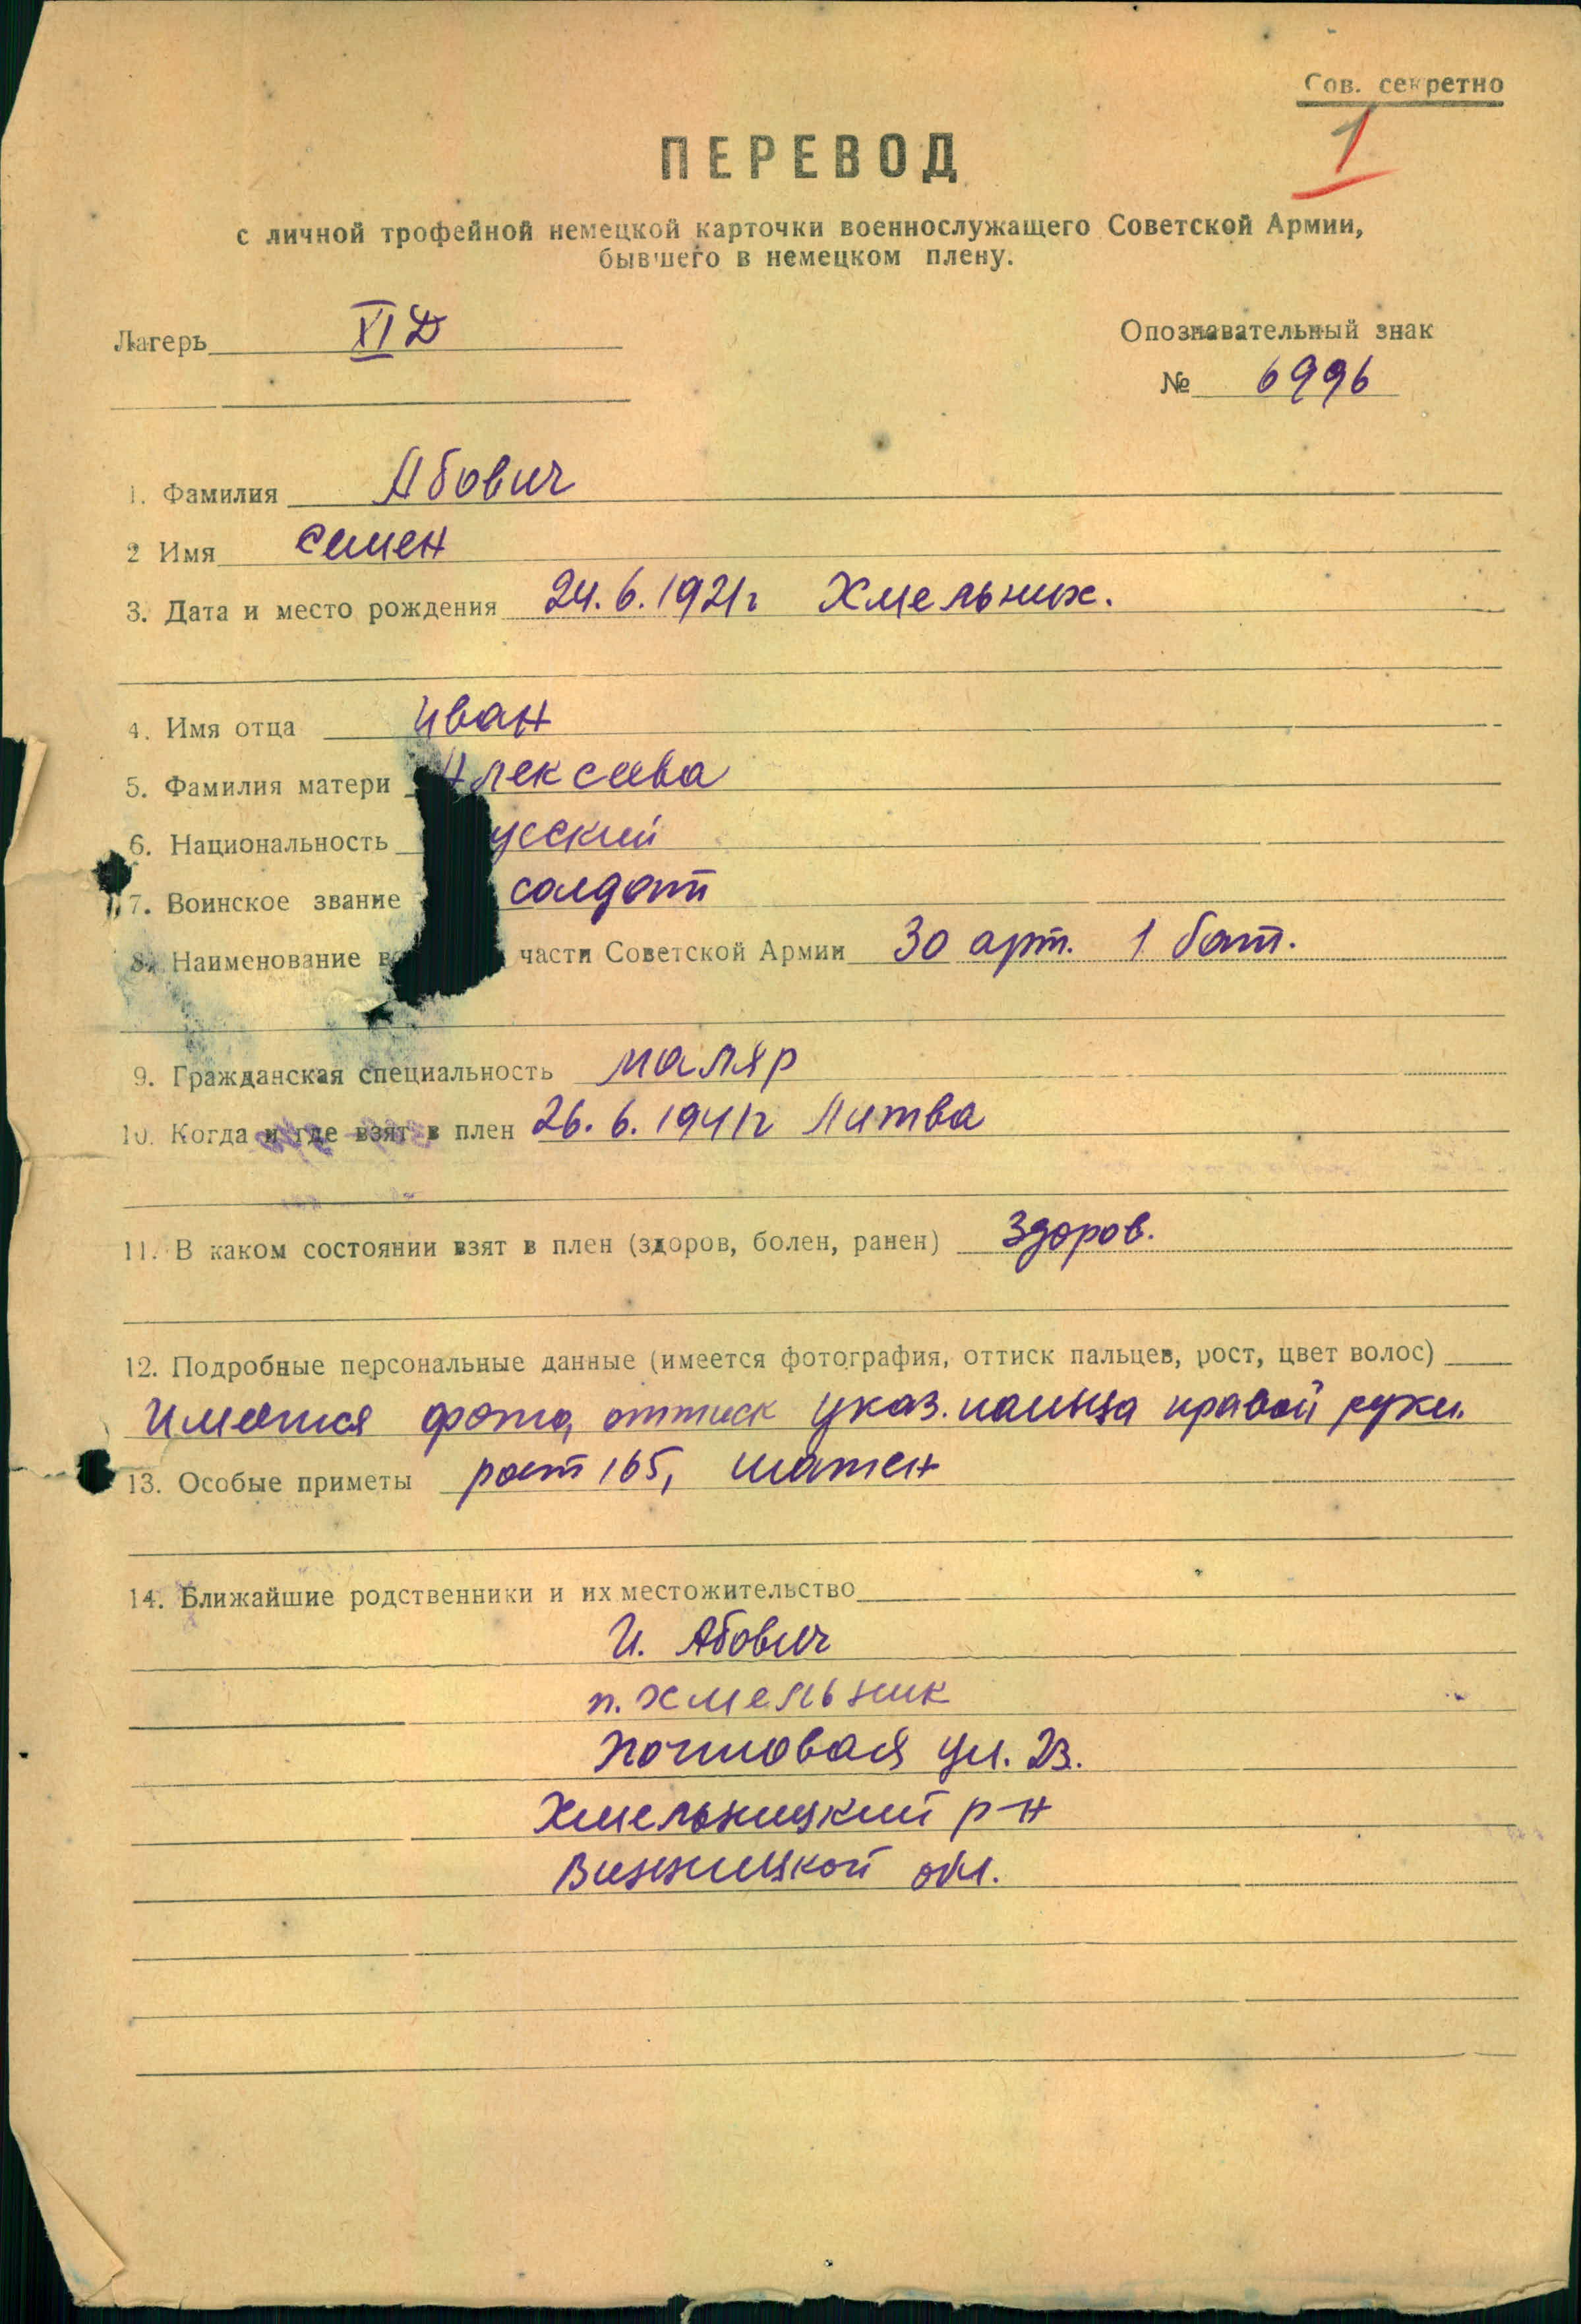 Сов. секретно
1
ПЕРЕВОД
с личной трофейной немецкой карточки военнослужащего Советской Армии,
бывшего в немецком плену.
Лагерь XI Д
Опознавательный знак
№ 6996
1. Фамилия Абович
2 Имя Семен
3. Дата и место рождения 24.6.1921г Хмельник.
4. Имя отца Иван
5. Фамилия матери Алексеева
6. Национальность усский
7. Воинское звание солдат
8. Наименование в части Советской Армии 30 арт. 1 бат.
9. Гражданская специальность маляр
10. Когда и где взят в плен 26.6.1941г Литва
11. В каком состоянии взят в плен (здоров, болен, ранен) Здоров.
12. Подробные персональные данные (имеется фотография, оттиск пальцев, рост, цвет волос)
Имеется фото, оттиск указ. пальца правой руки.
13. Особые приметы рост 165, шатен
14. Ближайшие родственники и их местожительство
И. Абович
п. Хмельник
Почтовая ул. 23.
Хмельницкий р-н
Винницкой обл.